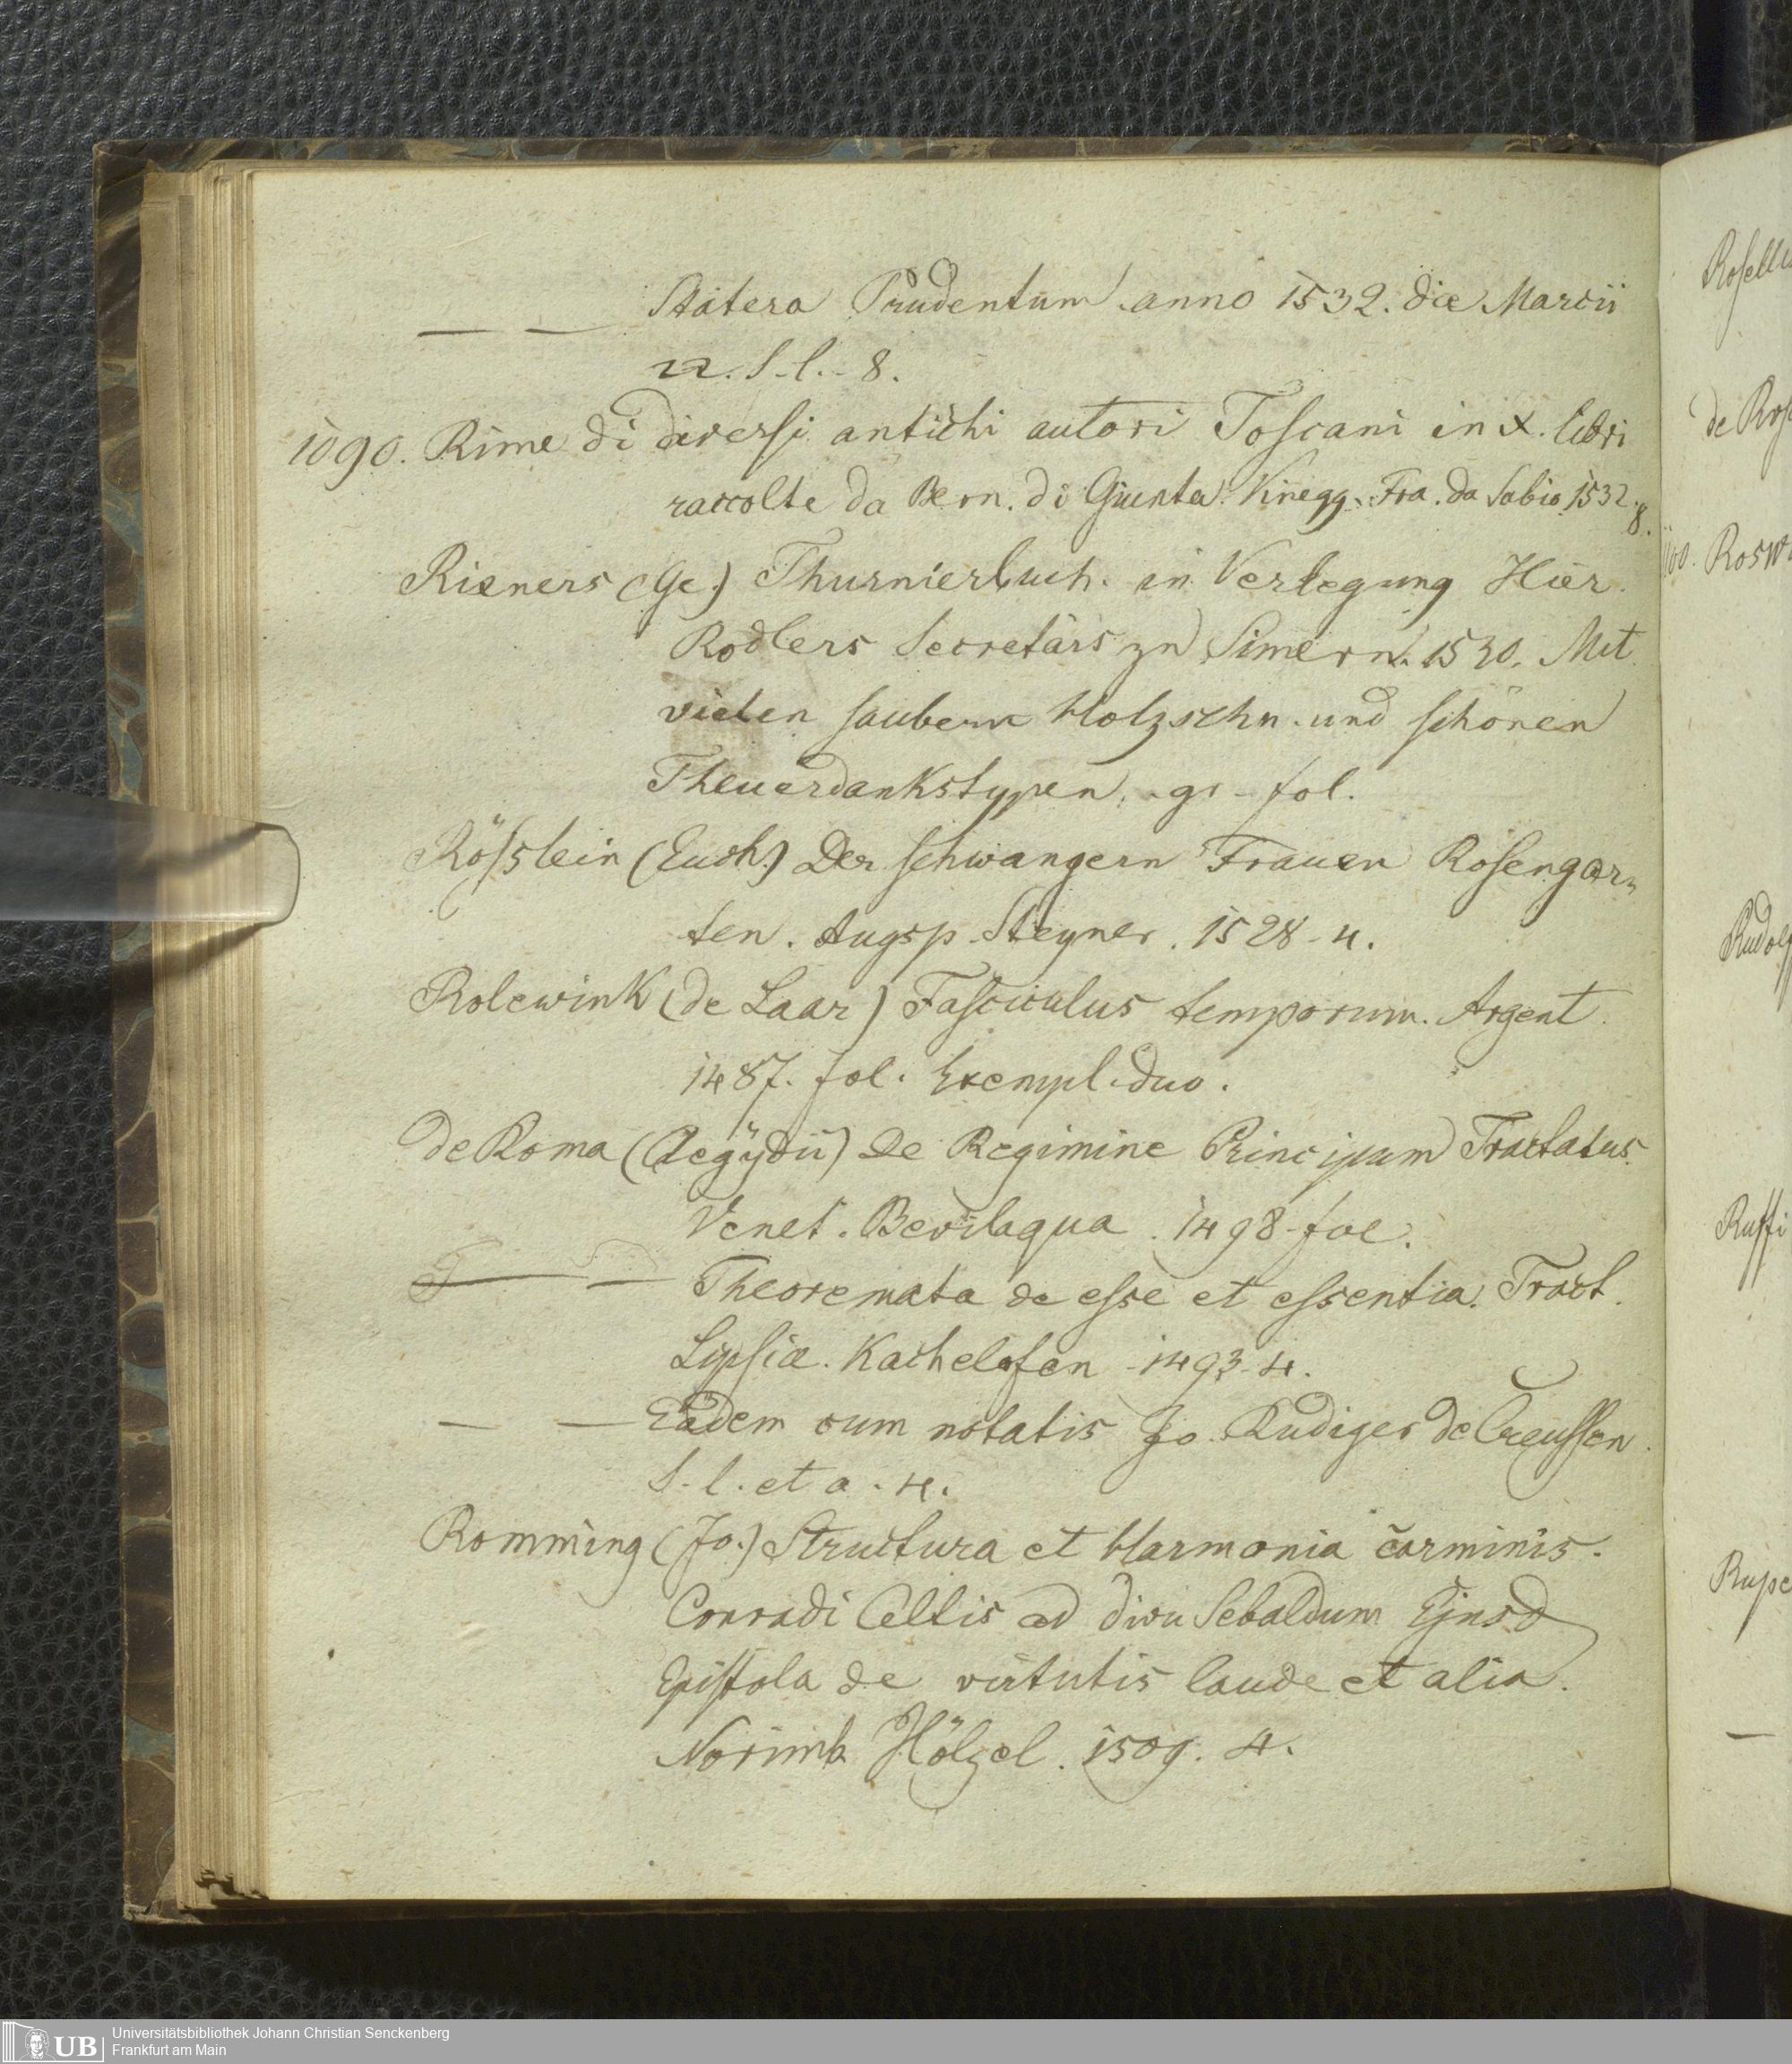 — — Statera Prudentum anno 1532. die Marcii
22. S. l. - 8.
1090. Rime di diversi antichi autori Toscani in X. libri
raccolte da Bern. di Giunta. Vinegg. Fra. da Sabio 1532. 8.
Rixners (Ge.) Thurnierbuch. in Verlegung Hier.
Rodlers Secretärs zu Simern. 1530. Mit
vielen saubern Holzschn. und schönen
Theuerdankstypen. gr - fol.
Rösslein (Euch.) Der schwangern Frauen Rosengar-
ten. Augsp. Steyner. 1528 - 4.
Rolewink (de Laar) Fasciculus temporum. Argent.
1487. fol. Exempl. duo.
de Roma (Aegÿdii) De Regimine Principum Tractatus.
Venet. Bevilaqua. 1498 - fol.
— — Theoremata de esse et essentia. Tract.
Lipsiæ. Kachelofen - 1493 - 4.
— — Eadem cum notatis Jo. Rudiger de Creussen.
S. l. et a. 4.
Romming (Jo.) Structura et Harmonia carminis.
Conradi Celtis ad divu Sebaldum Ejusd
Epistola de virtutis laude et alia.
Norimb. Hölzel. 1509. 4.
de Ros
1100. Rosw
Rudolp
Ruffi
Rupe
—
UB
Universitätsbibliothek Johann Christian Senckenberg
Frankfurt am Main